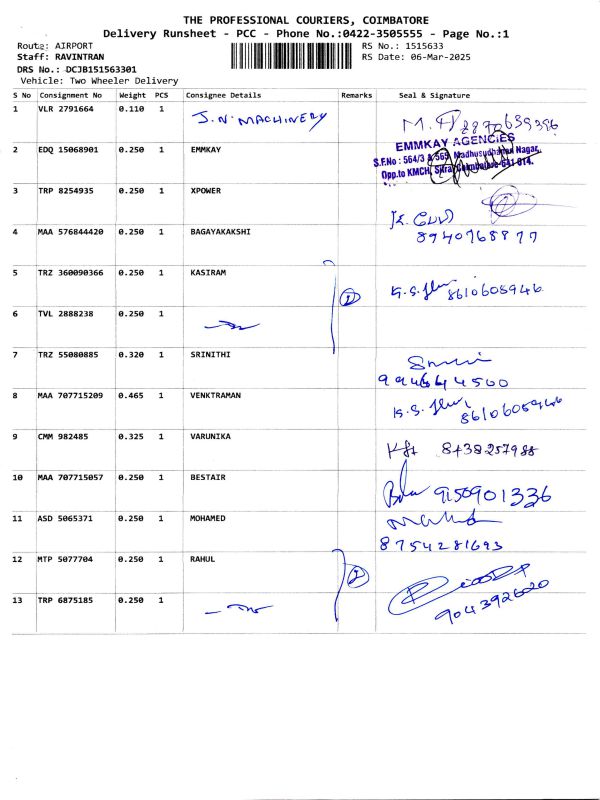 THE PROFESSIONAL COURIERS, COIMBATORE
Delivery Runsheet - PCC - Phone No.:0422-3505555 - Page No.:1
Route: AIRPORT RS No.: 1515633
Staff: RAVINTRAN RS Date: 06-Mar-2025
DRS No.: DCJB151563301
Vehicle: Two Wheeler Delivery
S No Consignment No Weight PCS Consignee Details Remarks Seal & Signature
1 VLR 2791664 0.110 1 J.N. MACHINERY 8870639396
2 EDQ 15068901 0.250 1 EMMKAY
EMMKAY AGENCIES
S.F.No : 564/3 & 565, Madhusudhanan Nagar,
Opp.to KMCH, Coimbatore-641 014.
3 TRP 8254935 0.250 1 XPOWER
4 MAA 576844420 0.250 1 BAGAYAKAKSHI
8940768877
5 TRZ 360090366 0.250 1 KASIRAM 2 8610605946
6 TVL 2888238 0.250 1
7 TRZ 55080885 0.320 1 SRINITHI
9944644500
8 MAA 707715209 0.465 1 VENKTRAMAN 8610605946
9 CMM 982485 0.325 1 VARUNIKA 8438257988
10 MAA 707715057 0.250 1 BESTAIR 9150901336
11 ASD 5065371 0.250 1 MOHAMED
8754281693
12 MTP 5077704 0.250 1 RAHUL 2
13 TRP 6875185 0.250 1 9043926020